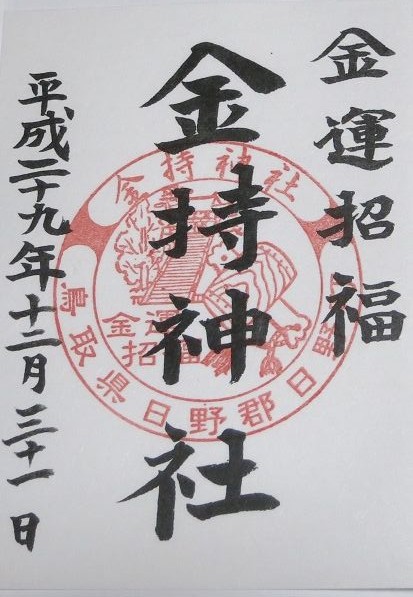 金運招福
金持神社
平成二十九年十二月三十一日
金持神社
金運
招福
鳥取県日野郡日野